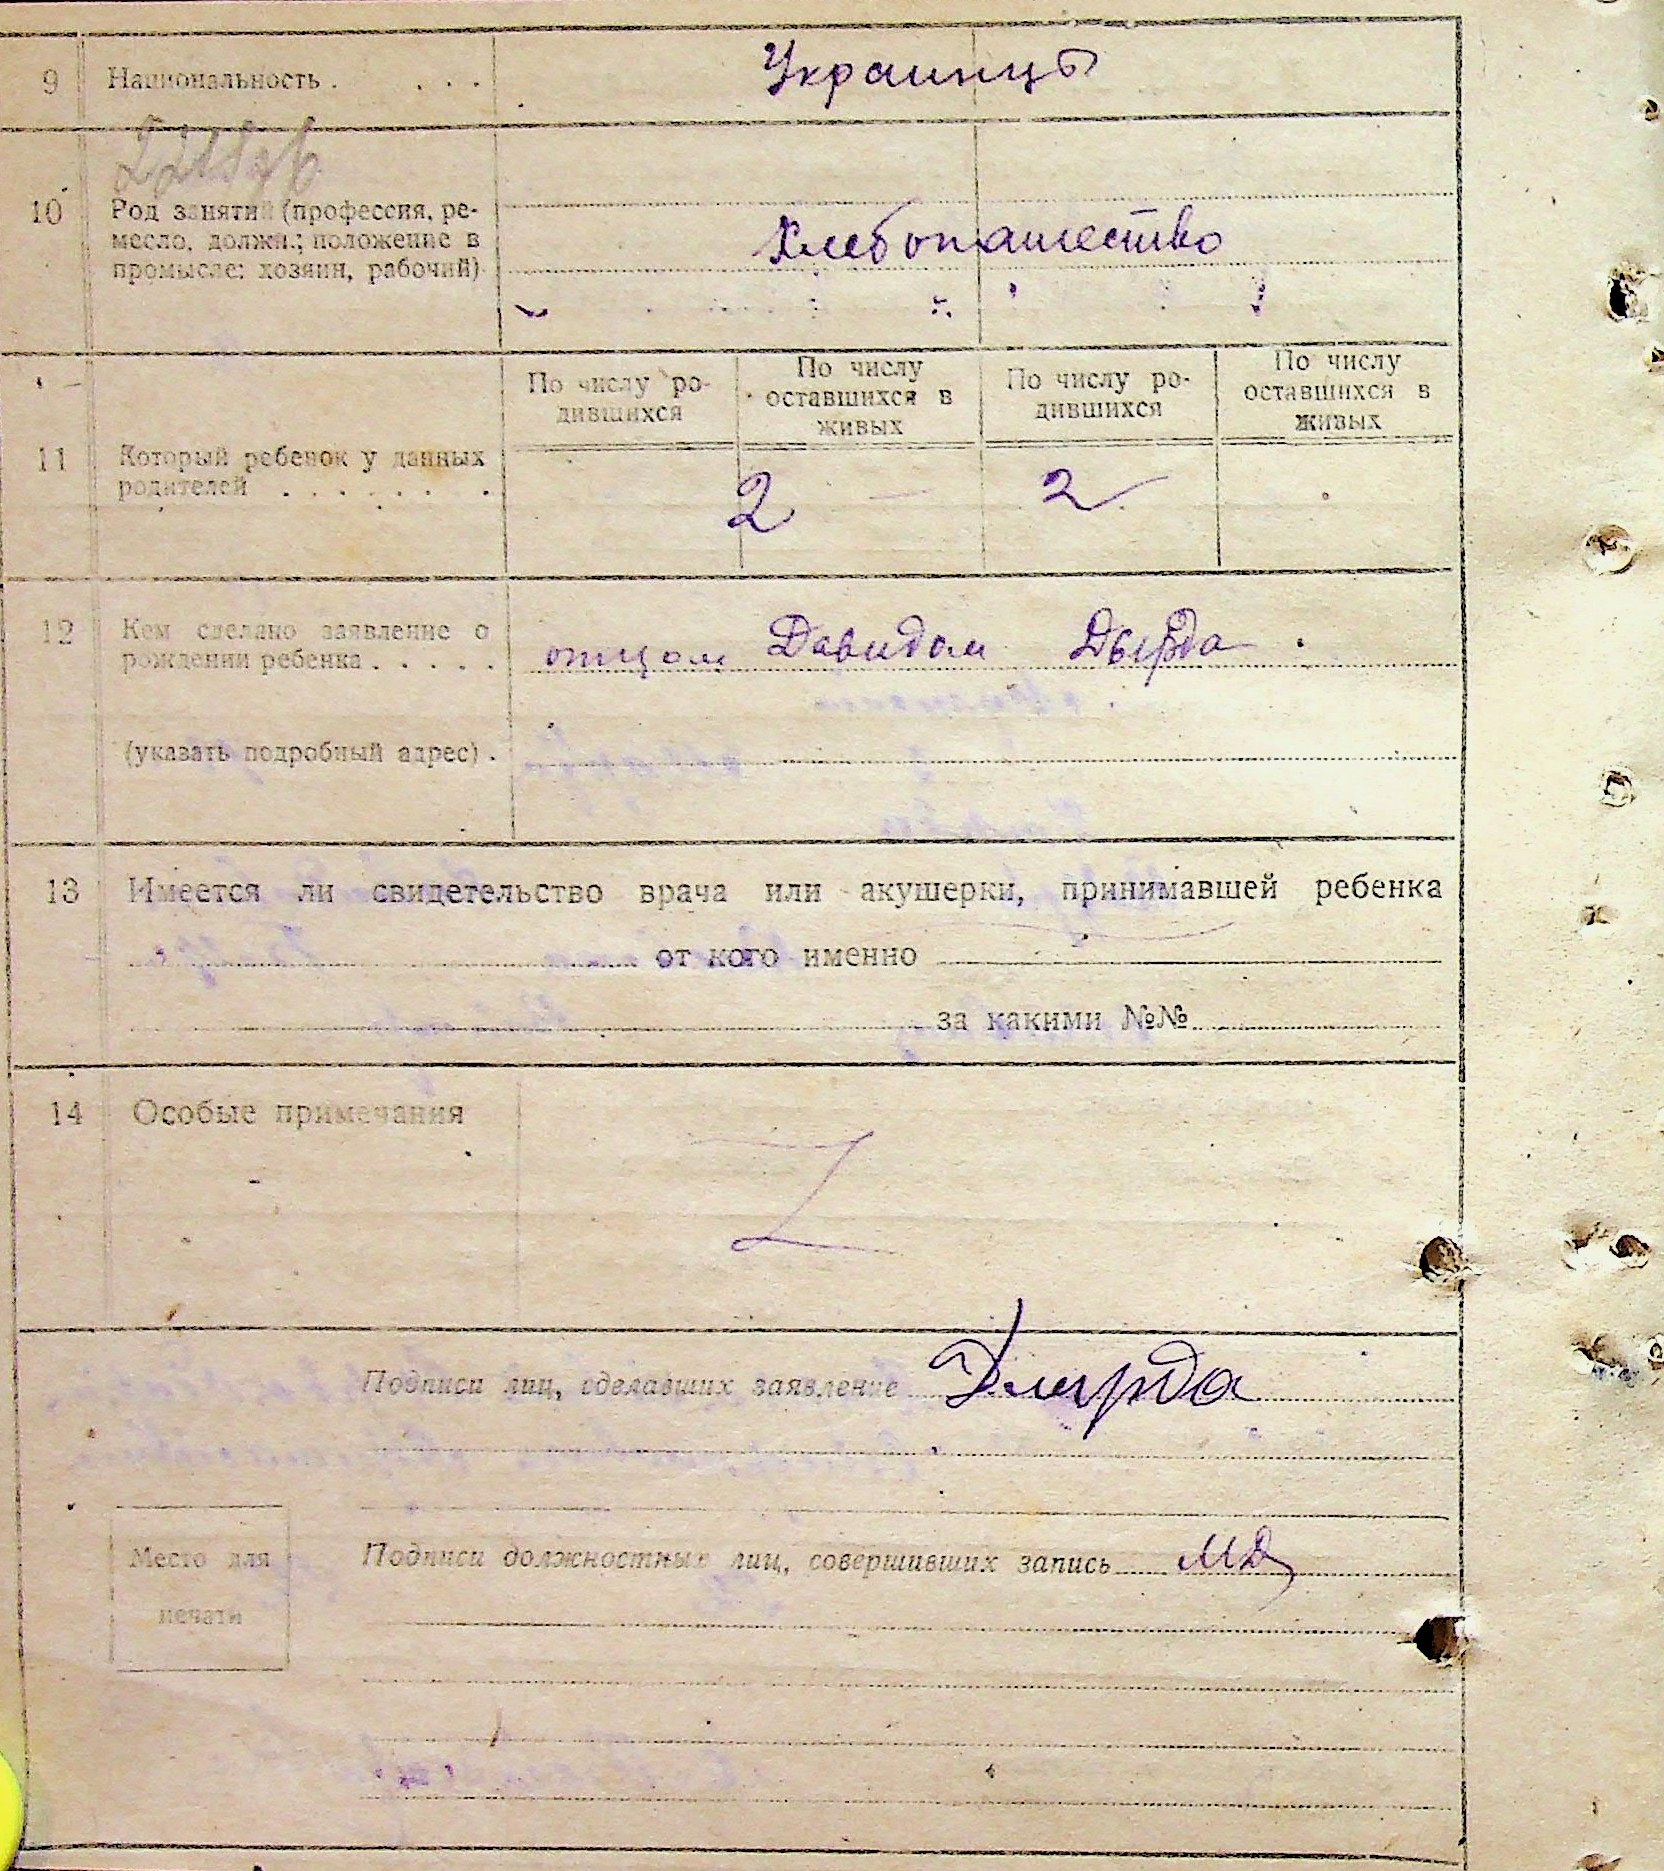 9 Национальность . . . . Украинцы
10 Род занятий (профессия, ре-
месло, должн.; положение в
промысле: хозяин, рабочий)
Хлебопашество
По числу ро-
дившихся
По числу
оставшихся в
живых
По числу ро-
дившихся
По числу
оставшихся в
живых
11 Который ребенок у данных
родителей . . . . . . .
2 — 2
12 Кем сделано заявление о
рождении ребенка . . . . .
отцом Давидом Дырда
(указать подробный адрес) .
13 Имеется ли свидетельство врача или акушерки, принимавшей ребенка
от кого именно
за какими №№
14 Особые примечания
Z
Подписи лиц, сделавших заявление Дырда
Место для
печати
Подписи должностных лиц, совершивших запись МД